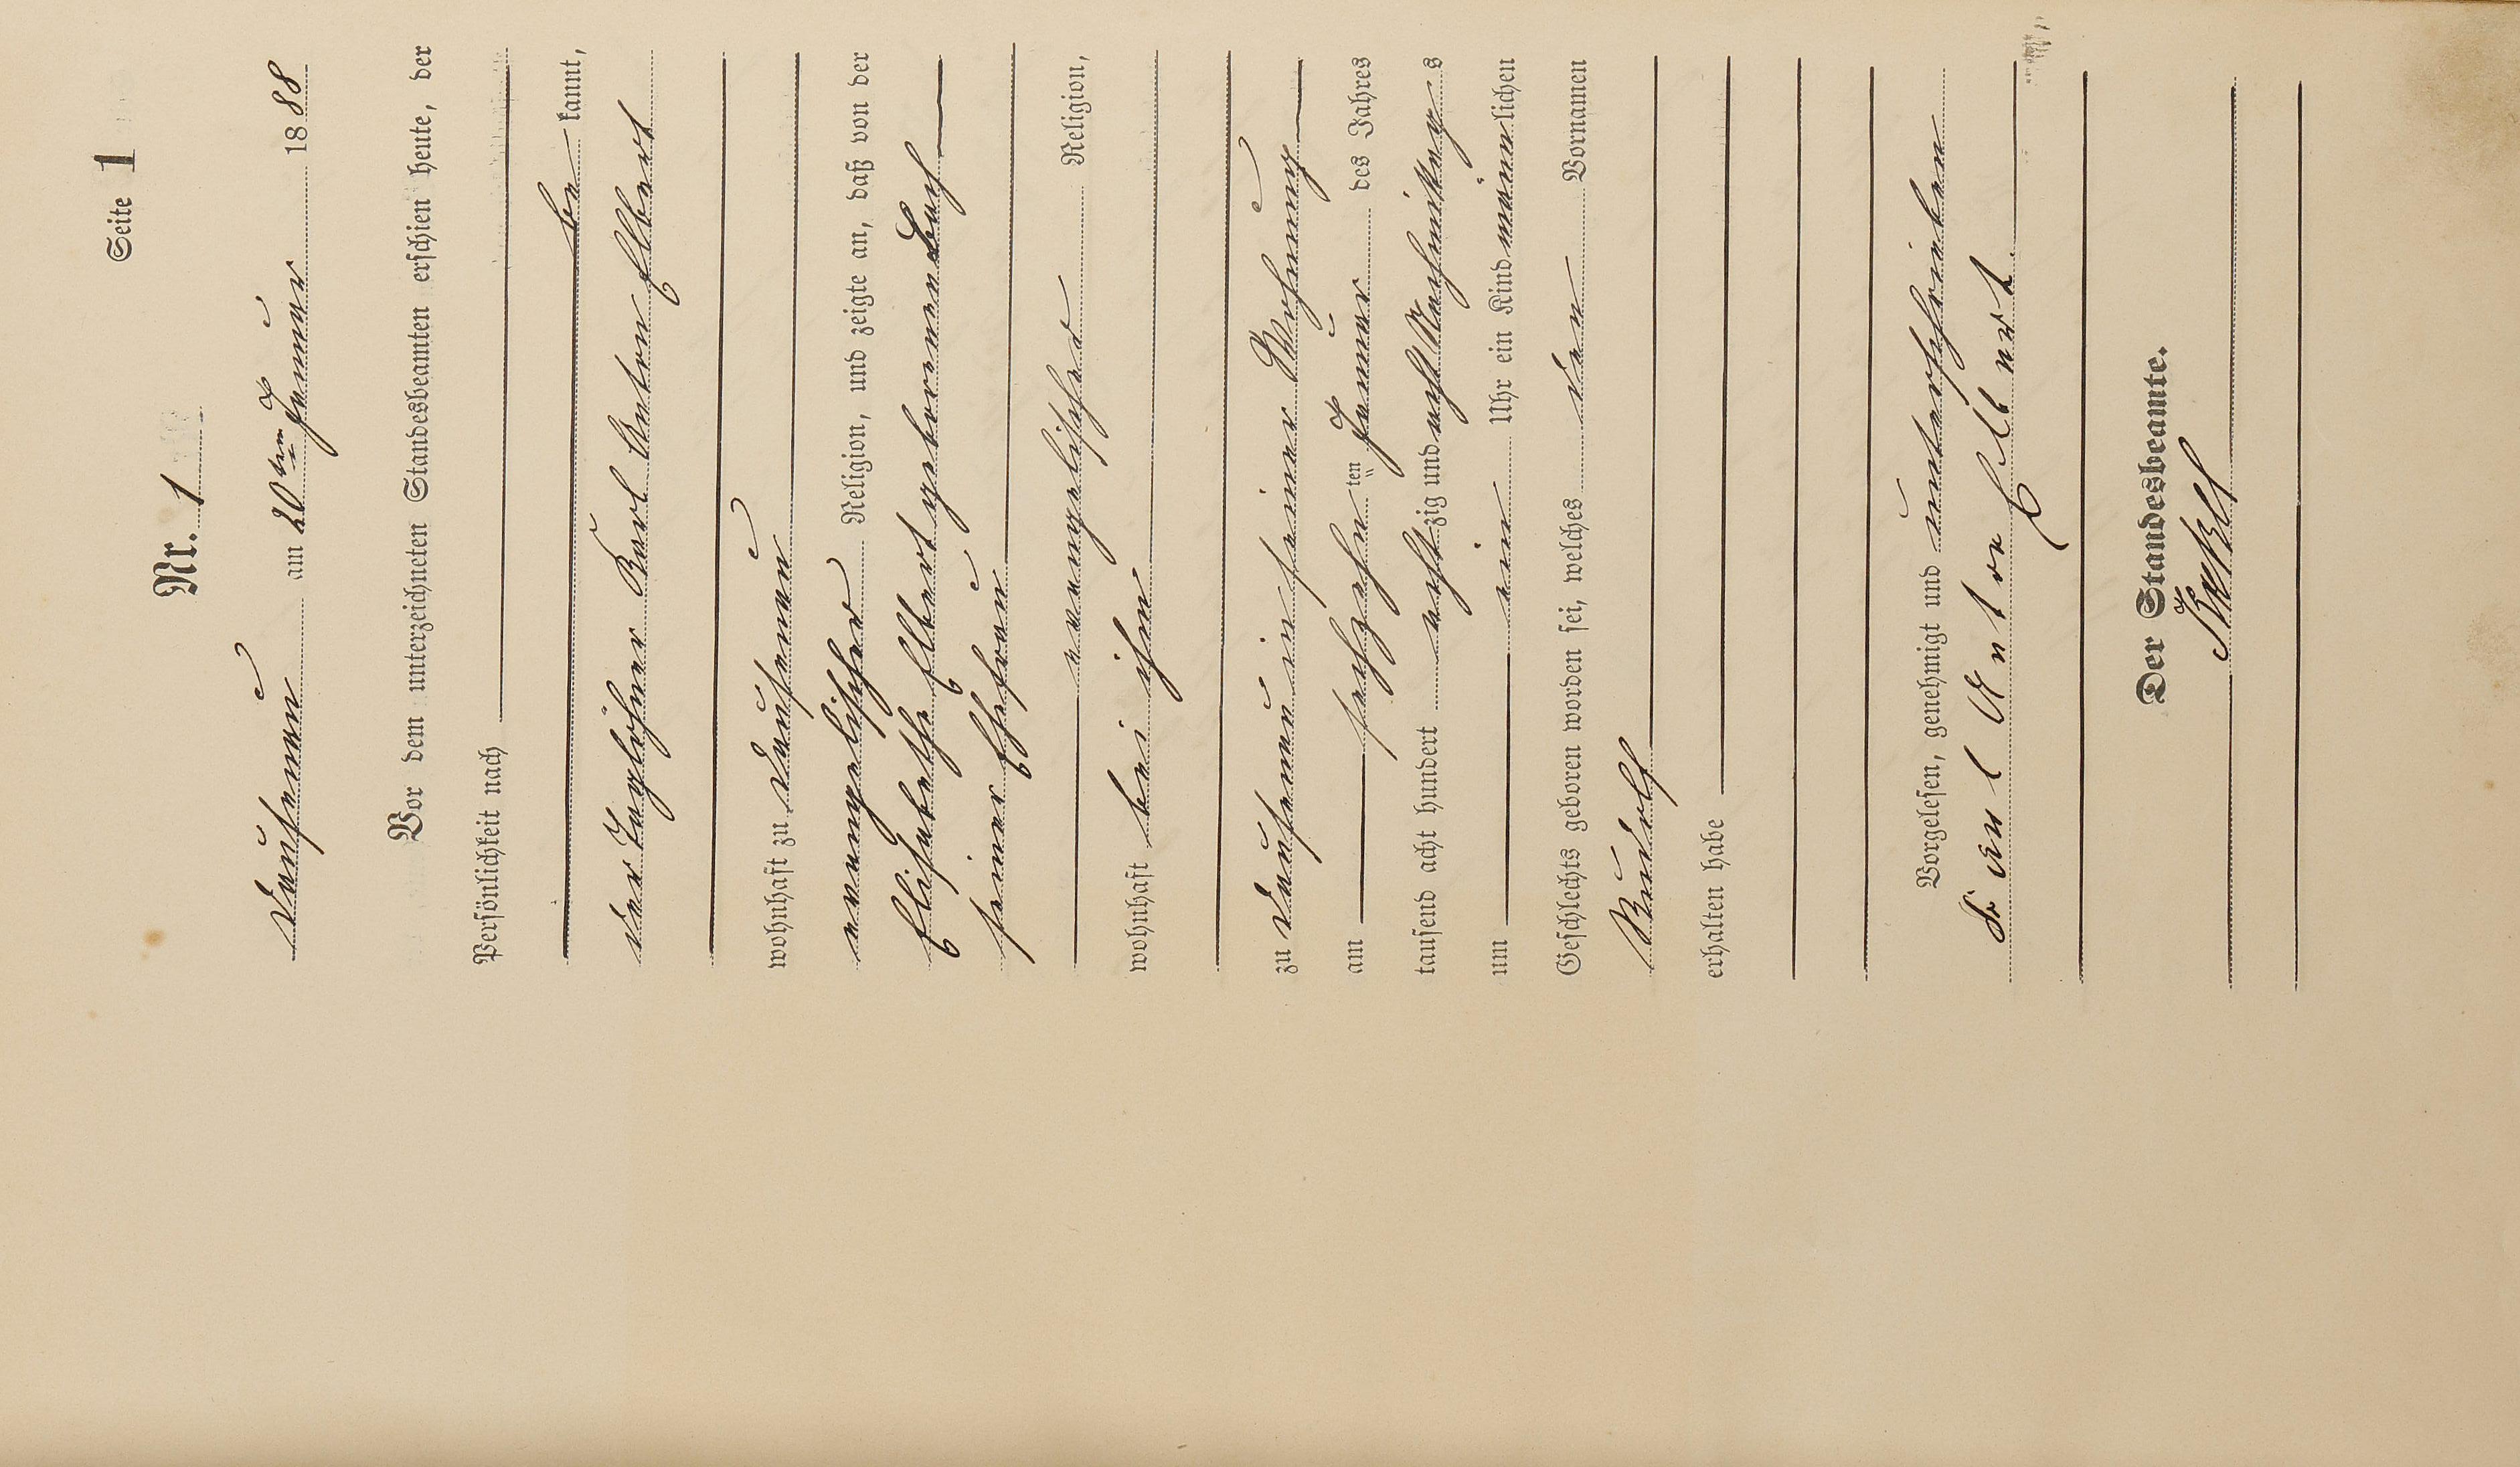 Seite 1
Nr. 1
Dausenau am 20ten Januar 1888
Vor dem unterzeichneten Standesbeamten erschien heute, der
Persönlichkeit nach
be kannt,
der Taglöhner Karl Anton Elbert
wohnhaft zu Dausenau
evangelischer Religion, und zeigte an, daß von der
Elisabethe Elbert geborenen Bach
seiner Ehefrau
evangelischer Religion,
wohnhaft bei ihm
zu Dausenau in seiner Wohnung
am sechzehn ten Januar des Jahres
tausend acht hundert achtzig und acht Nachmittags
um ein Uhr ein Kind männlichen
Geschlechts geboren worden sei, welches den Vornamen
Rudolf
erhalten habe
Vorgelesen, genehmigt und unterschrieben
Anton Elbert.
Der Standesbeamte.